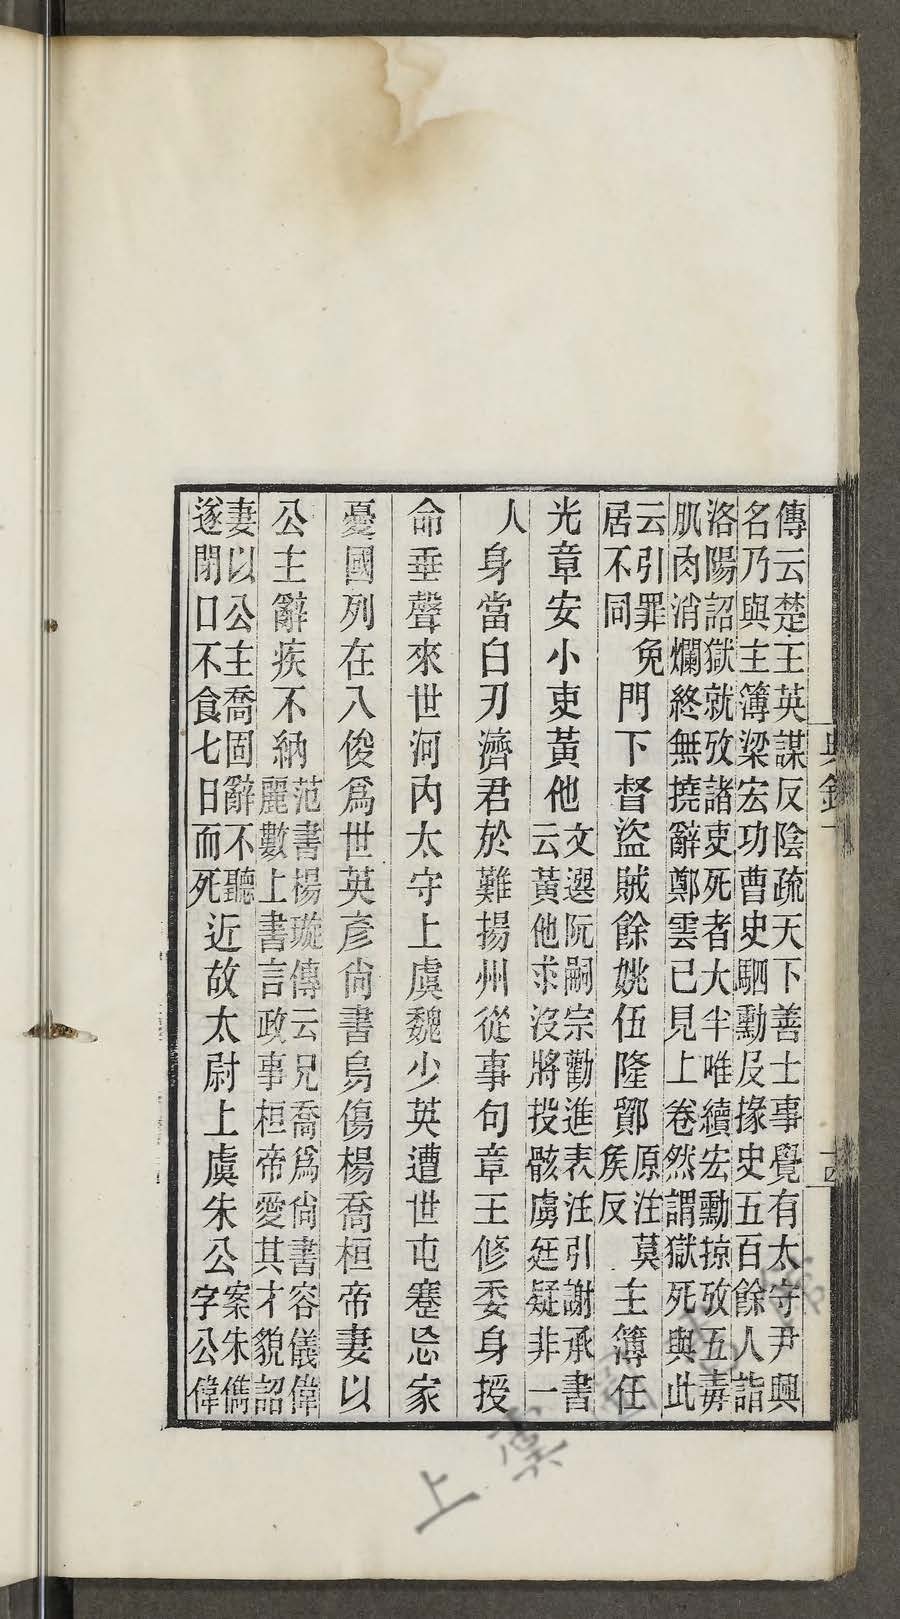 傳云楚王英謀反陰疏天下善士事覺有太守尹興
名乃與主簿梁宏功曹史駟勳及掾史五百餘人詣
洛陽詔獄就攷諸吏死者大半唯續宏勳掠攷五毒
肌肉消爛終無撓辭鄭雲已見上卷然謂獄死與此
云引罪免
居不同
門下督盜賊餘姚伍隆鄮
原注莫
矦反
主簿任
光章安小吏黃他
文選阮嗣宗勸進表注引謝承書
云黃他求沒將投骸虜廷疑非一
人
身當白刃濟君於難揚州從事句章王修委身授
命垂聲來世河內太守上虞魏少英遭世屯蹇忘家
憂國列在八俊爲世英彥尚書烏傷楊喬桓帝妻以
公主辭疾不納
范書楊璇傳云兄喬爲尚書容儀偉
麗數上書言政事桓帝愛其才貌詔
妻以公主喬固辭不聽
遂閉口不食七日而死
近故太尉上虞朱公
案朱儁
字公偉
典錄一
十四
上虞